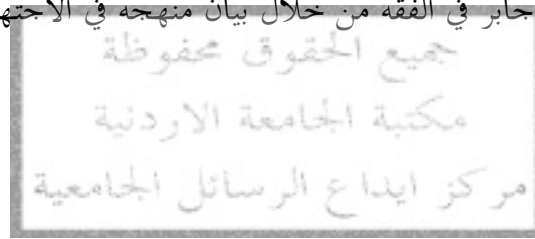 جابر في الفقه من خلال بيان منهجه في
جميع الحقوق محفوظة
مكتبة الجامعة الاردنية
مركز ايداع الرسائل الجامعية